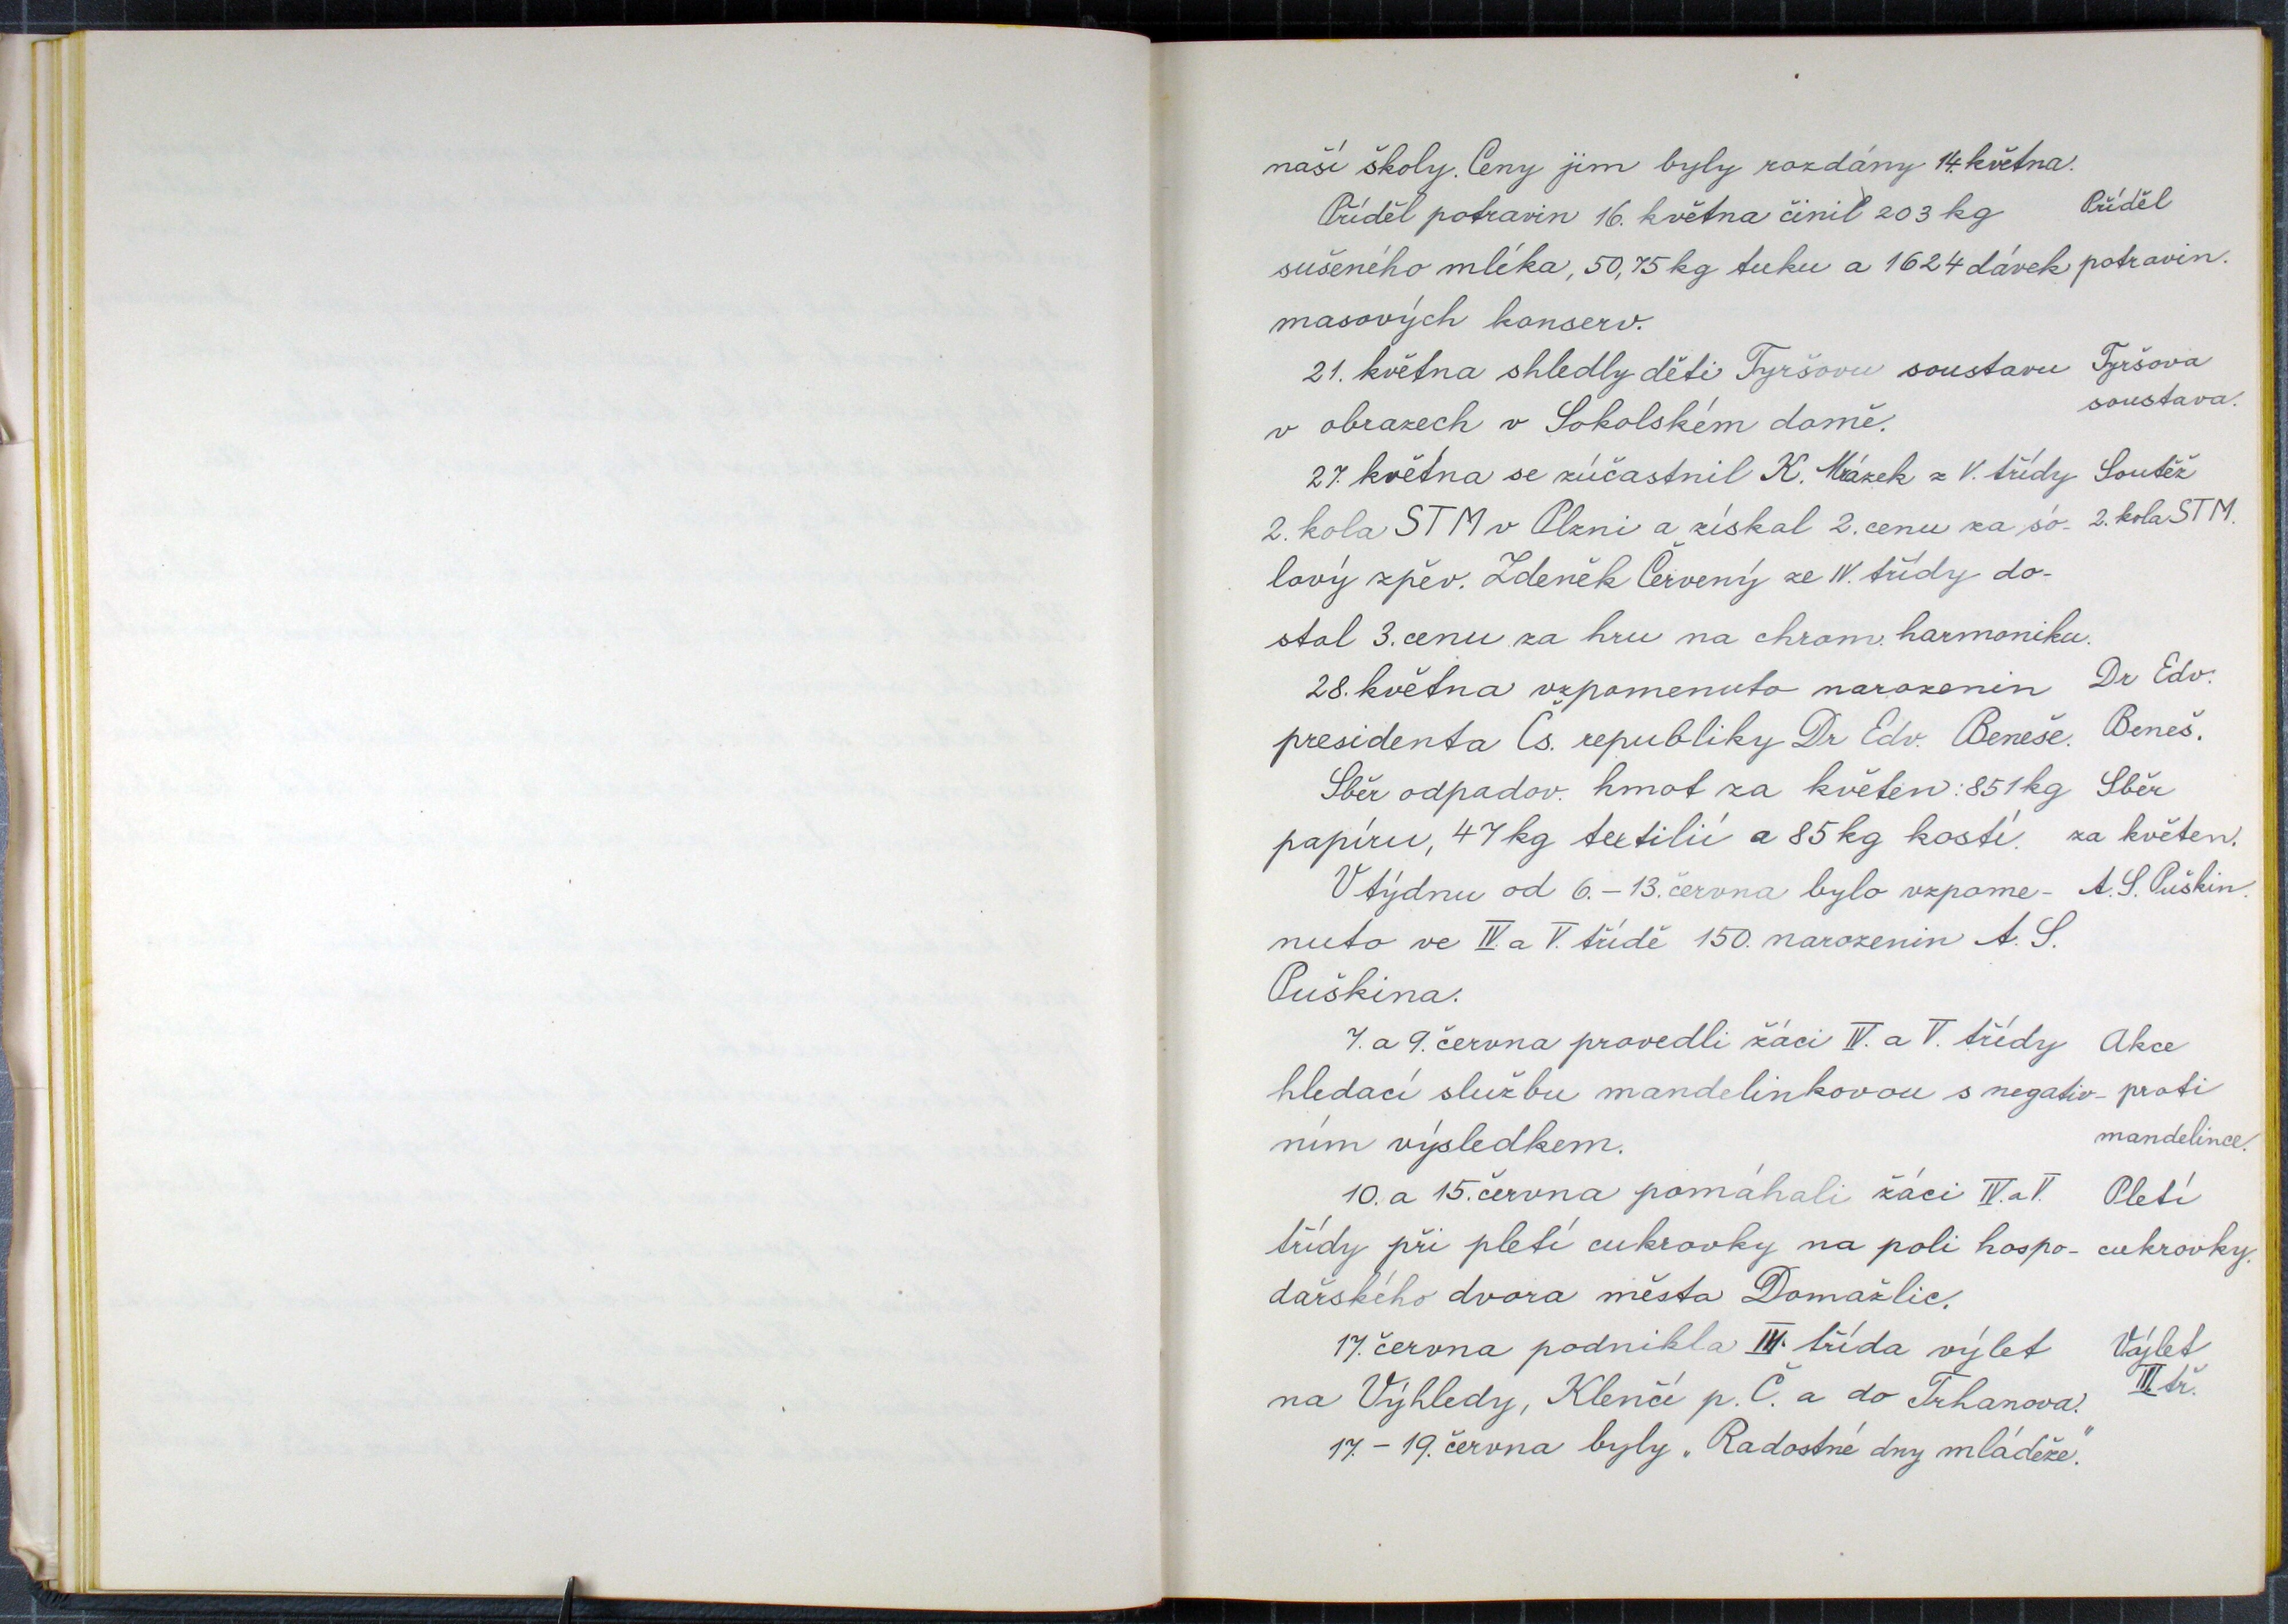 naší školy. Ceny jim byly rozdány 14. května.
Příděl potravin 16. května činil 203 kg
Příděl
sušeného mléka, 50,75 kg tuku a 1624 dávek
potravin.
masových konserv.
21. května shledly děti Tyršovu soustavu
Tyršova
soustava.
v obrazech v Sokolském domě.
27. května se zúčastnil K. Mrázek z V. třídy
Soutěž
2. kola STM v Plzni a získal 2. cenu za só-
2. kola STM.
lový zpěv. Zdeněk Červený ze IV. třídy do-
stal 3. cenu za hru na chrom. harmoniku.
28. května vzpomenuto narozenin
Dr Edv.
presidenta Čs. republiky Dr Edv. Beneše.
Beneš.
Sběr odpadov. hmot za květen: 851 kg
Sběr
papíru, 47 kg textilií a 85 kg kostí.
za květen.
V týdnu od 6. – 13. června bylo vzpome-
A. S. Puškin.
nuto ve IV. a V. třídě 150. narozenin A. S.
Puškina.
7. a 9. června provedli žáci IV. a V. třídy
Akce
hledací službu mandelinkovou s negativ-
proti
ním výsledkem.
mandelince.
10. a 15. června pomáhali žáci IV. a V.
Pletí
třídy při pletí cukrovky na poli hospo-
cukrovky.
dářského dvora města Domažlic.
17. června podnikla III. třída výlet
Výlet
na Výhledy, Klenčí p. Č. a do Trhanova.
III. tř.
17. – 19. června byly „Radostné dny mládeže".